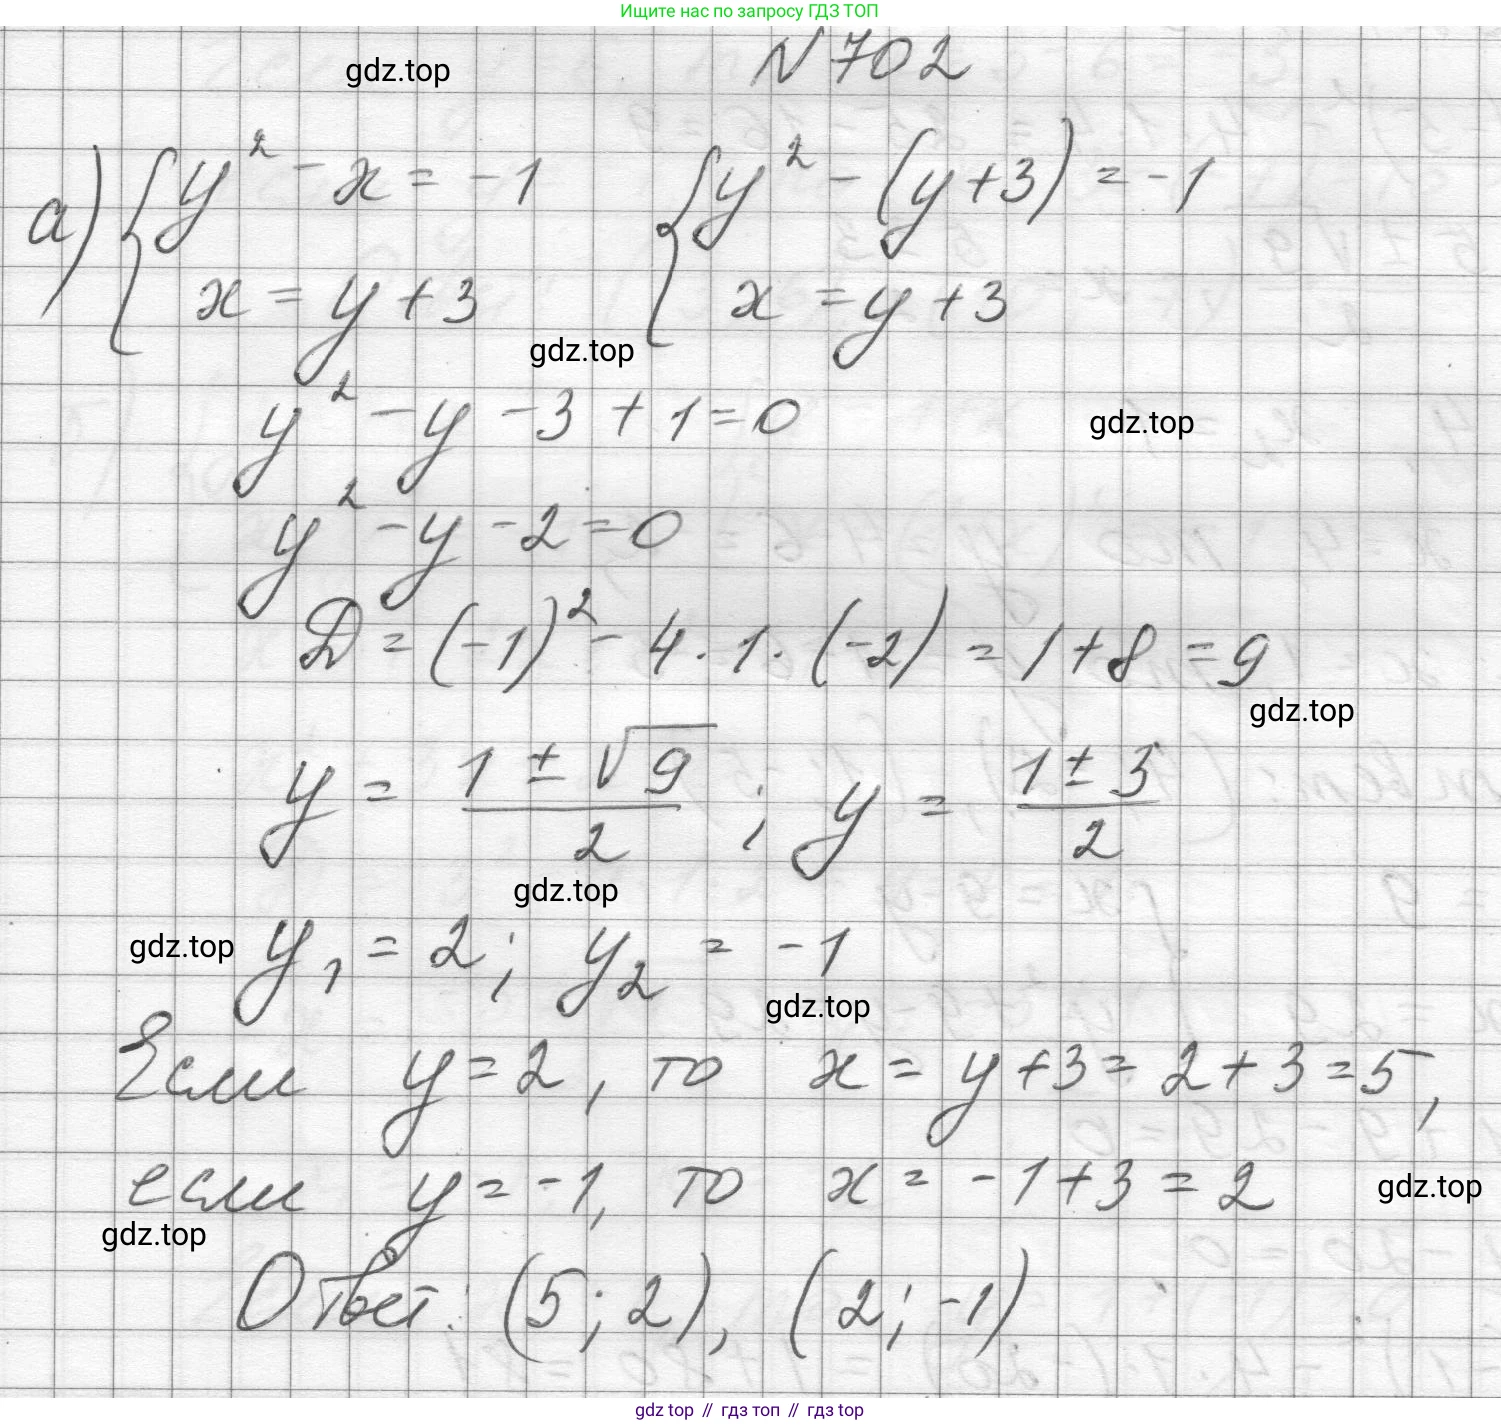 Ищите нас по запросу ГДЗ ТОП
N 702
gdz.top
а) { y² - x = -1 { y² - (y+3) = -1
x = y + 3 x = y + 3
gdz.top
y² - y - 3 + 1 = 0
gdz.top
y² - y - 2 = 0
D = (-1)² - 4 · 1 · (-2) = 1 + 8 = 9
gdz.top
y = (1 ± √9)/2 ; y = (1 ± 3)/2
gdz.top
gdz.top
y₁ = 2; y₂ = -1
gdz.top
Если y = 2, то x = y + 3 = 2 + 3 = 5,
если y = -1, то x = -1 + 3 = 2
gdz.top
gdz.top
Ответ: (5; 2), (2; -1)
gdz top // гдз топ // гдз top